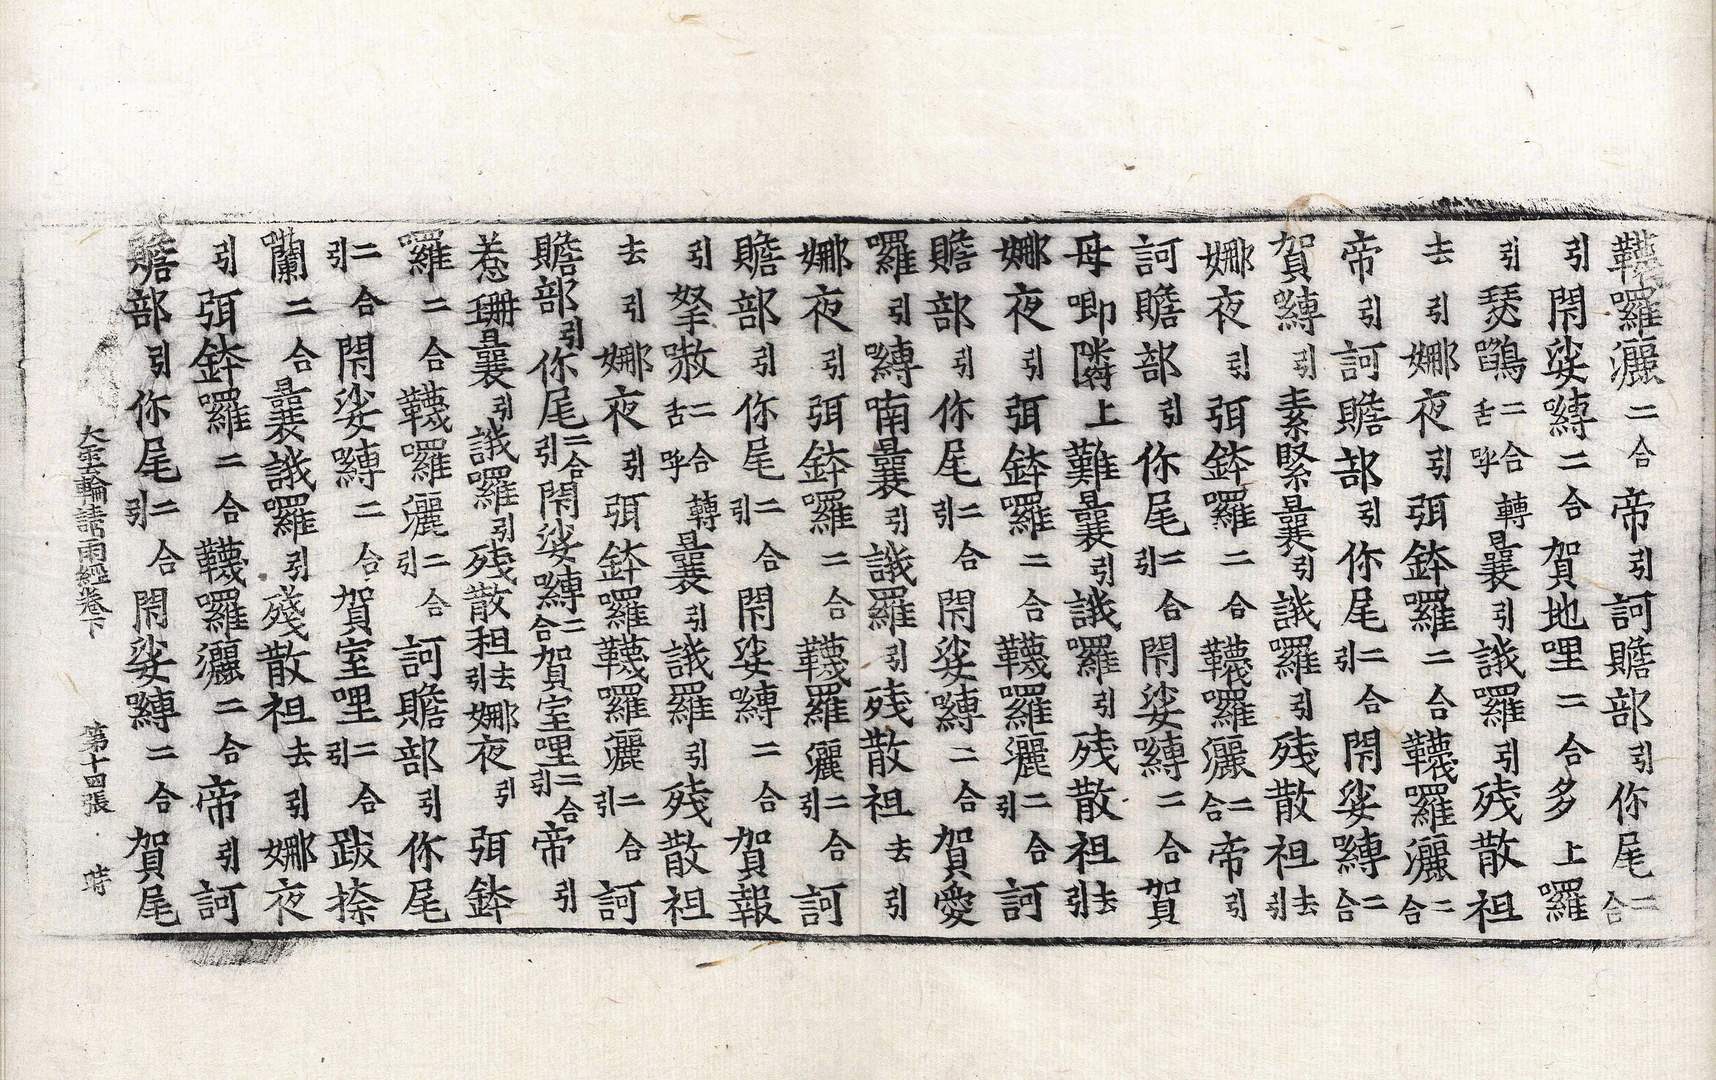 韈囉灑二合帝引訶贍部引你尾二合
引閇娑嚩二合賀地哩二合多上囉
引瑟鵮二合舌呼轉曩引誐囉引殘散祖
去引娜夜引弭鉢囉二合韈囉灑二合
帝引訶贍部引你尾二合引閇娑嚩二合
賀嚩引素緊曩引誐囉引殘散祖去引
娜夜引弭鉢囉二合韈囉灑二合帝引
訶贍部引你尾二合引閇娑嚩二合賀
母唧隣上難曩引誐囉引殘散祖去引
娜夜引弭鉢囉二合韈囉灑二合引訶
贍部引你尾二合引閇娑嚩二合賀愛
囉引嚩喃曩引誐囉引殘散祖去引
娜夜引弭鉢囉二合韈囉灑二合引訶
贍部引你尾二合引閇娑嚩二合賀報
引拏嗷二合舌呼轉曩引誐囉引殘散祖
去引娜夜引弭鉢囉韈囉灑二合引訶
贍部引你尾二合引閇娑嚩二合賀室哩二合引帝引
惹珊曩引誐囉引殘散祖去引娜夜引弭鉢
囉二合韈囉灑二合引訶贍部引你尾
二合引閇娑嚩二合賀室哩二合引跋捺
囒二合曩誐囉引殘散祖去引娜夜
引弭鉢囉二合韈囉灑二合帝引訶
贍部引你尾二合引閇娑嚩二合賀尾
大雲輪請雨經卷下 第十四張 時